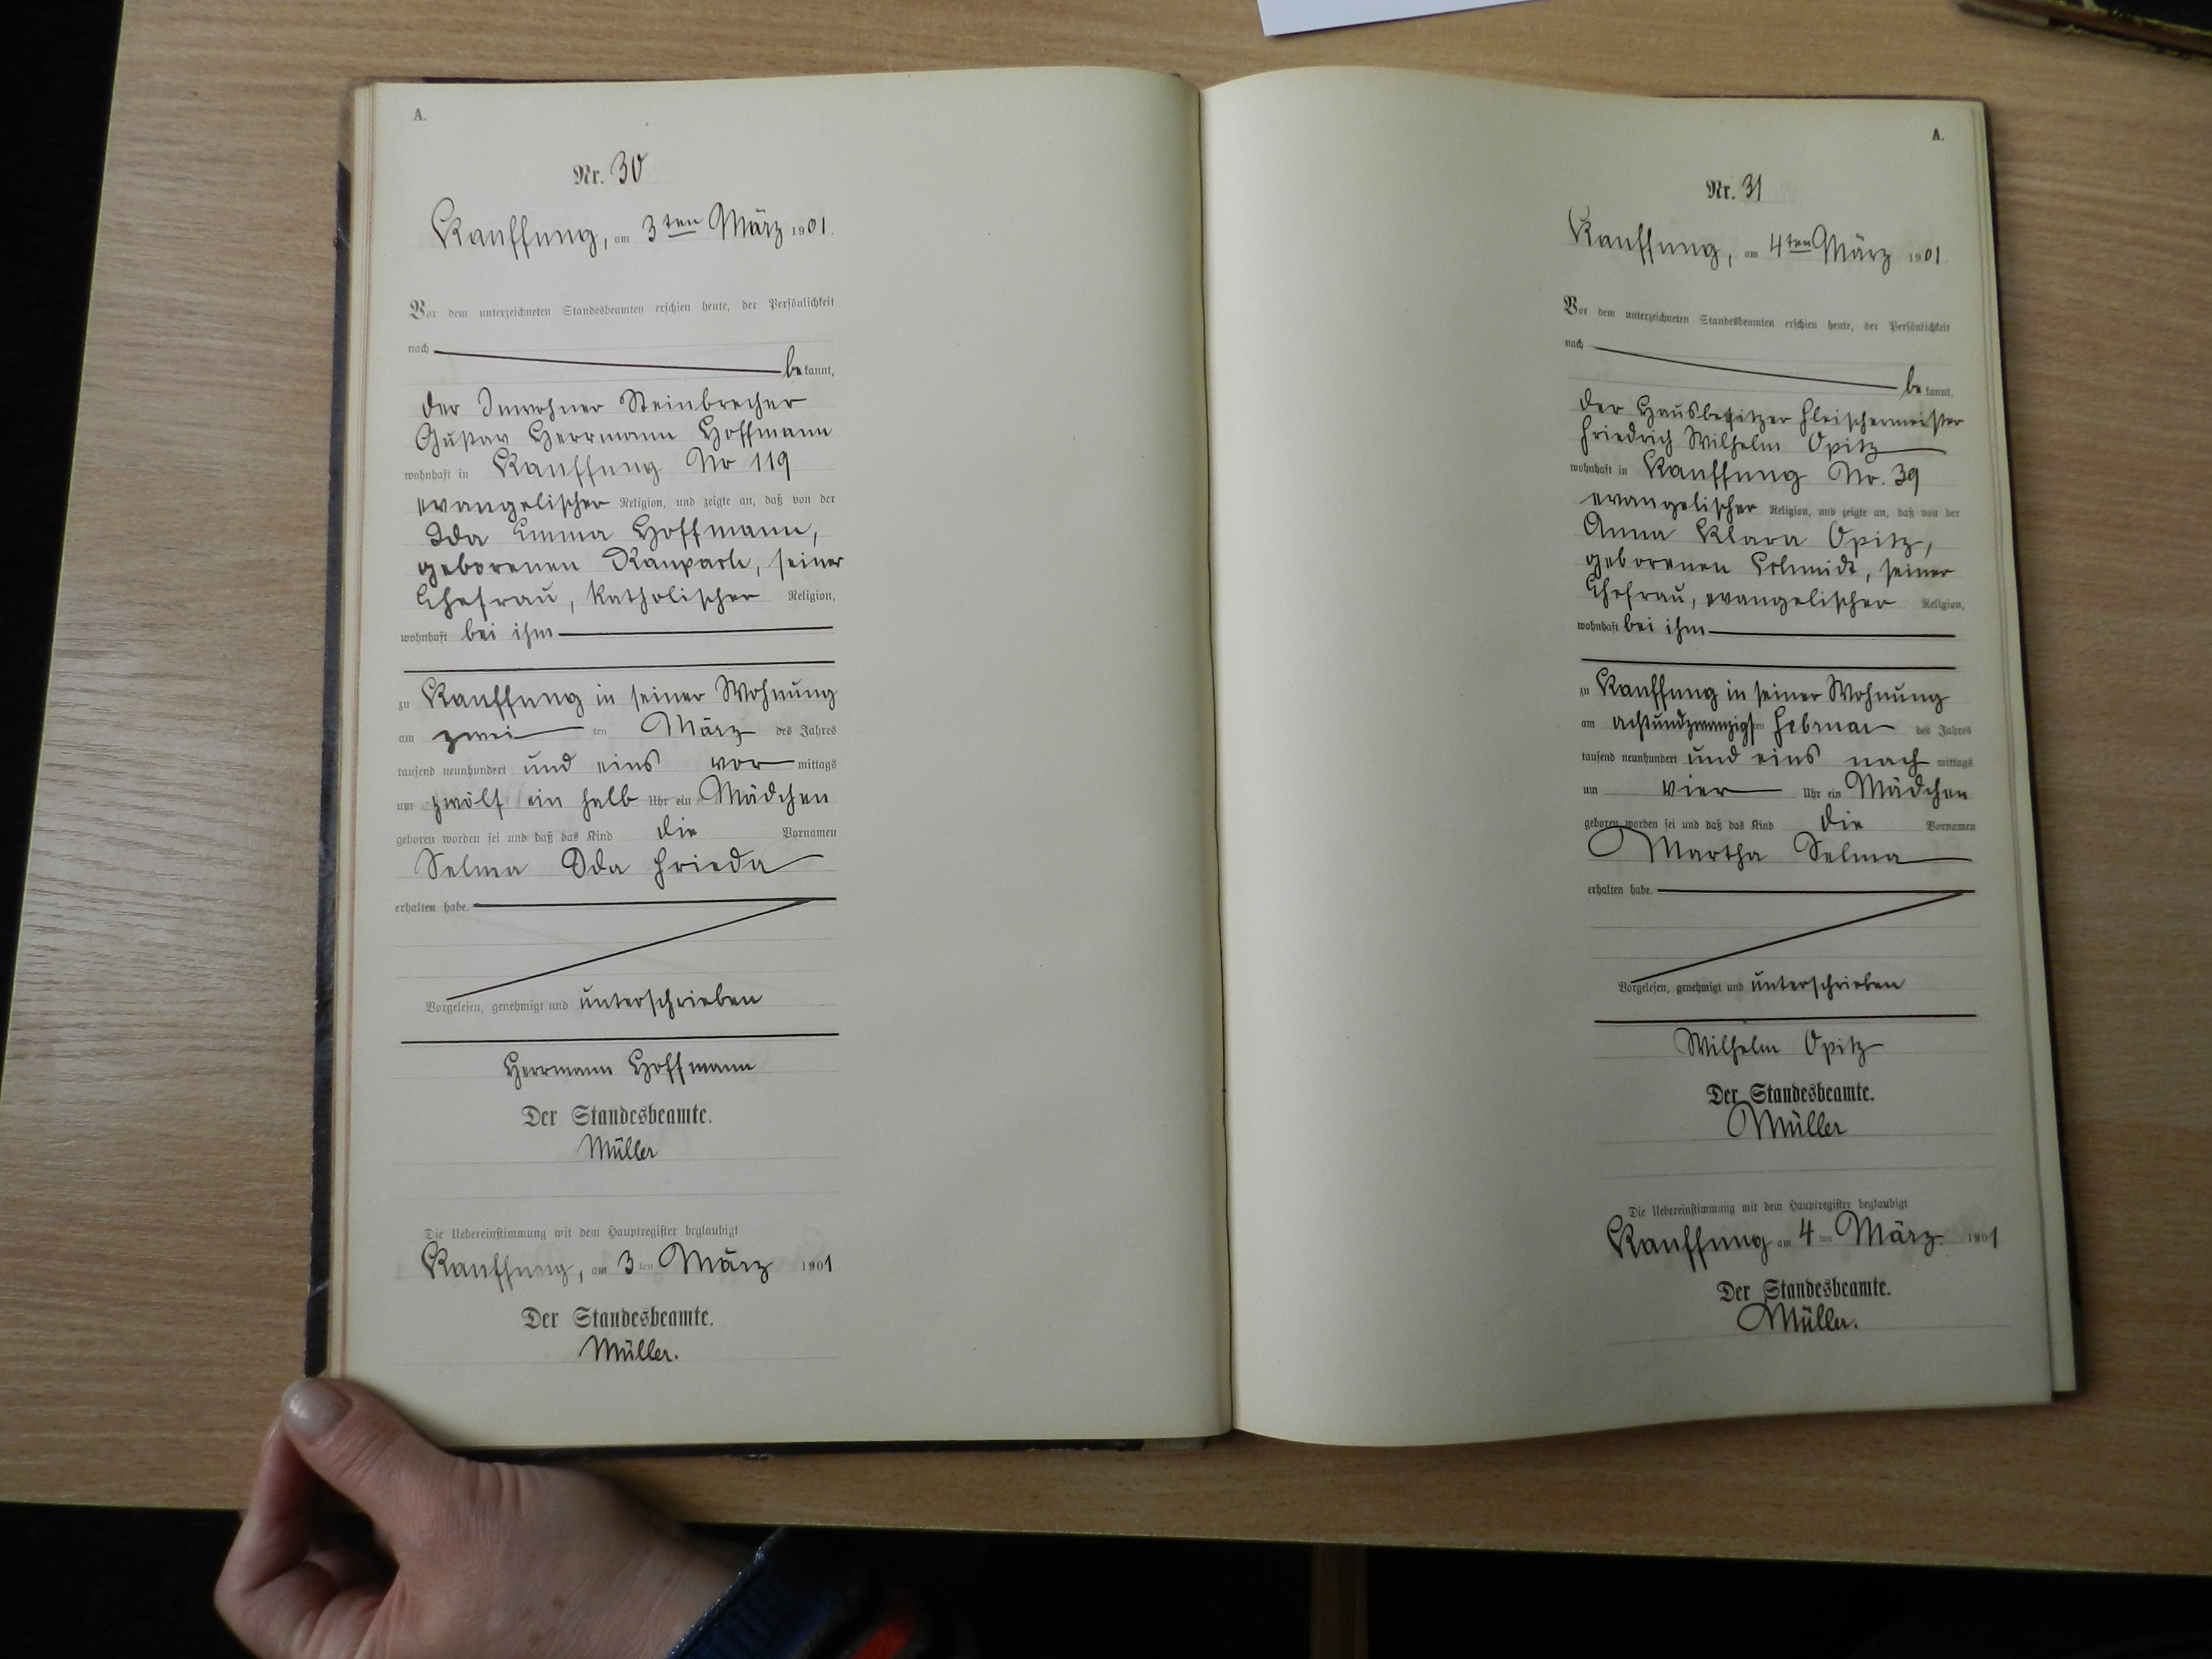 A.
Nr. 30
Kauffung, am 3ten März 1901.
Vor dem unterzeichneten Standesbeamten erschien heute, der Persönlichkeit
nach
bekannt,
der Inwohner Steinbrecher
Gustav Herrmann Hoffmann
wohnhaft in Kauffung Nr 119
evangelischer Religion, und zeigte an, daß von der
Ida Emma Hoffmann,
geborenen seiner
Ehefrau, katholischer Religion,
wohnhaft bei ihm
zu Kauffung in seiner Wohnung
am zwei ten März des Jahres
tausend neunhundert und eins vor mittags
um zwölf ein halb Uhr ein Mädchen
geboren worden sei und daß das Kind die Vornamen
Selma Ida Frieda
erhalten habe.
Vorgelesen, genehmigt und unterschrieben
Herrmann Hoffmann
Der Standesbeamte.
Müller
Die Uebereinstimmung mit dem Hauptregister beglaubigt
Kauffung, am 3 ten März 1901
Der Standesbeamte.
Müller.
A.
Nr. 31
Kauffung, am 4ten März 1901.
Vor dem unterzeichneten Standesbeamten erschien heute, der Persönlichkeit
nach
bekannt,
der Hausbesitzer Fleischermeister
Friedrich Wilhelm Opitz
wohnhaft in Kauffung Nr. 39
evangelischer Religion, und zeigte an, daß von der
Anna Klara Opitz,
geborenen Schmidt, seiner
Ehefrau, evangelischer Religion,
wohnhaft bei ihm
zu Kauffung in seiner Wohnung
am achtundzwanzigsten Februar des Jahres
tausend neunhundert und eins nach mittags
um vier Uhr ein Mädchen
geboren worden sei und daß das Kind die Vornamen
Martha Selma
erhalten habe.
Vorgelesen, genehmigt und unterschrieben
Wilhelm Opitz
Der Standesbeamte.
Müller
Die Uebereinstimmung mit dem Hauptregister beglaubigt
Kauffung am 4 ten März 1901
Der Standesbeamte.
Müller.